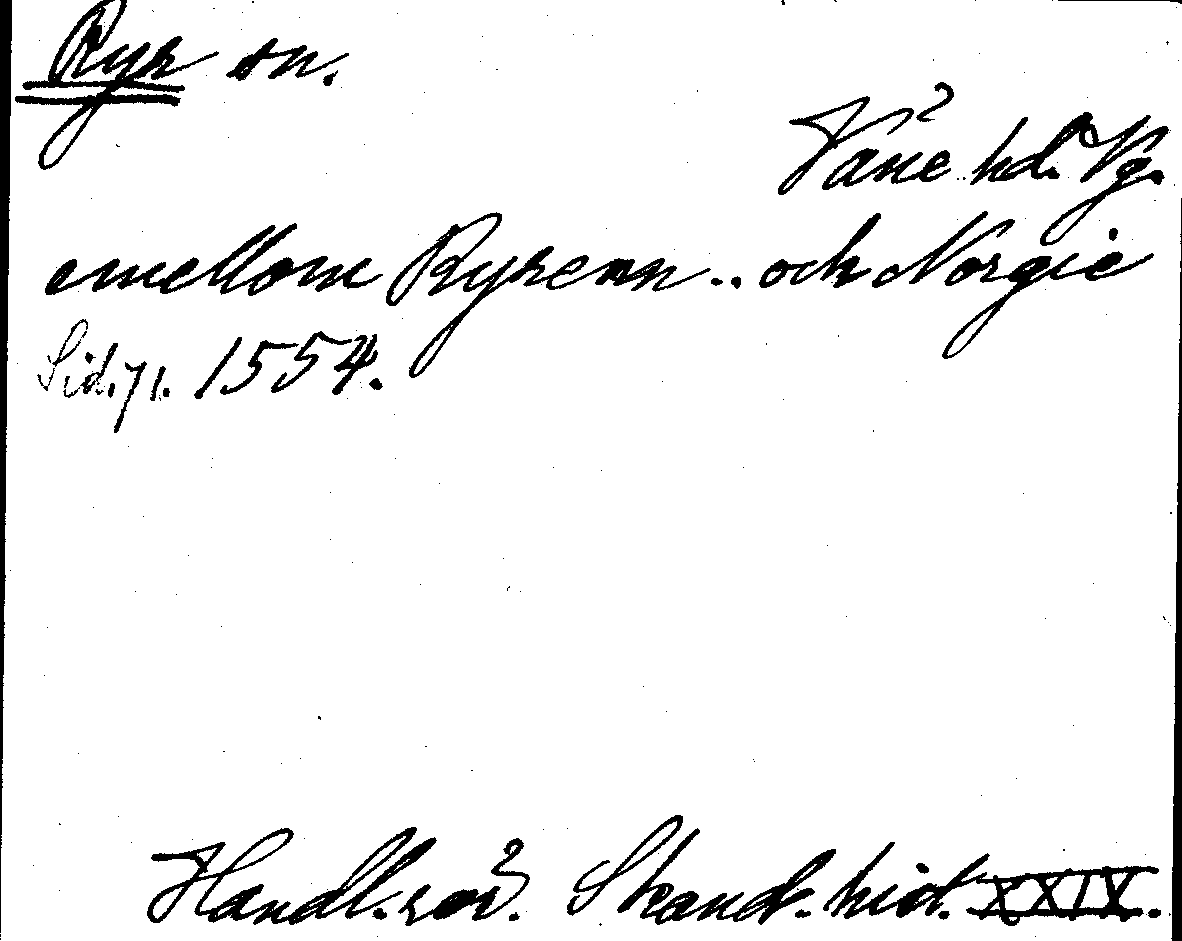 Ryr sn.
Väne hd. Vg.
emellom Ryrenn .. och Norgie
Sid. 71. 1554.
Handl. rör. Skand. hist. XXIX.